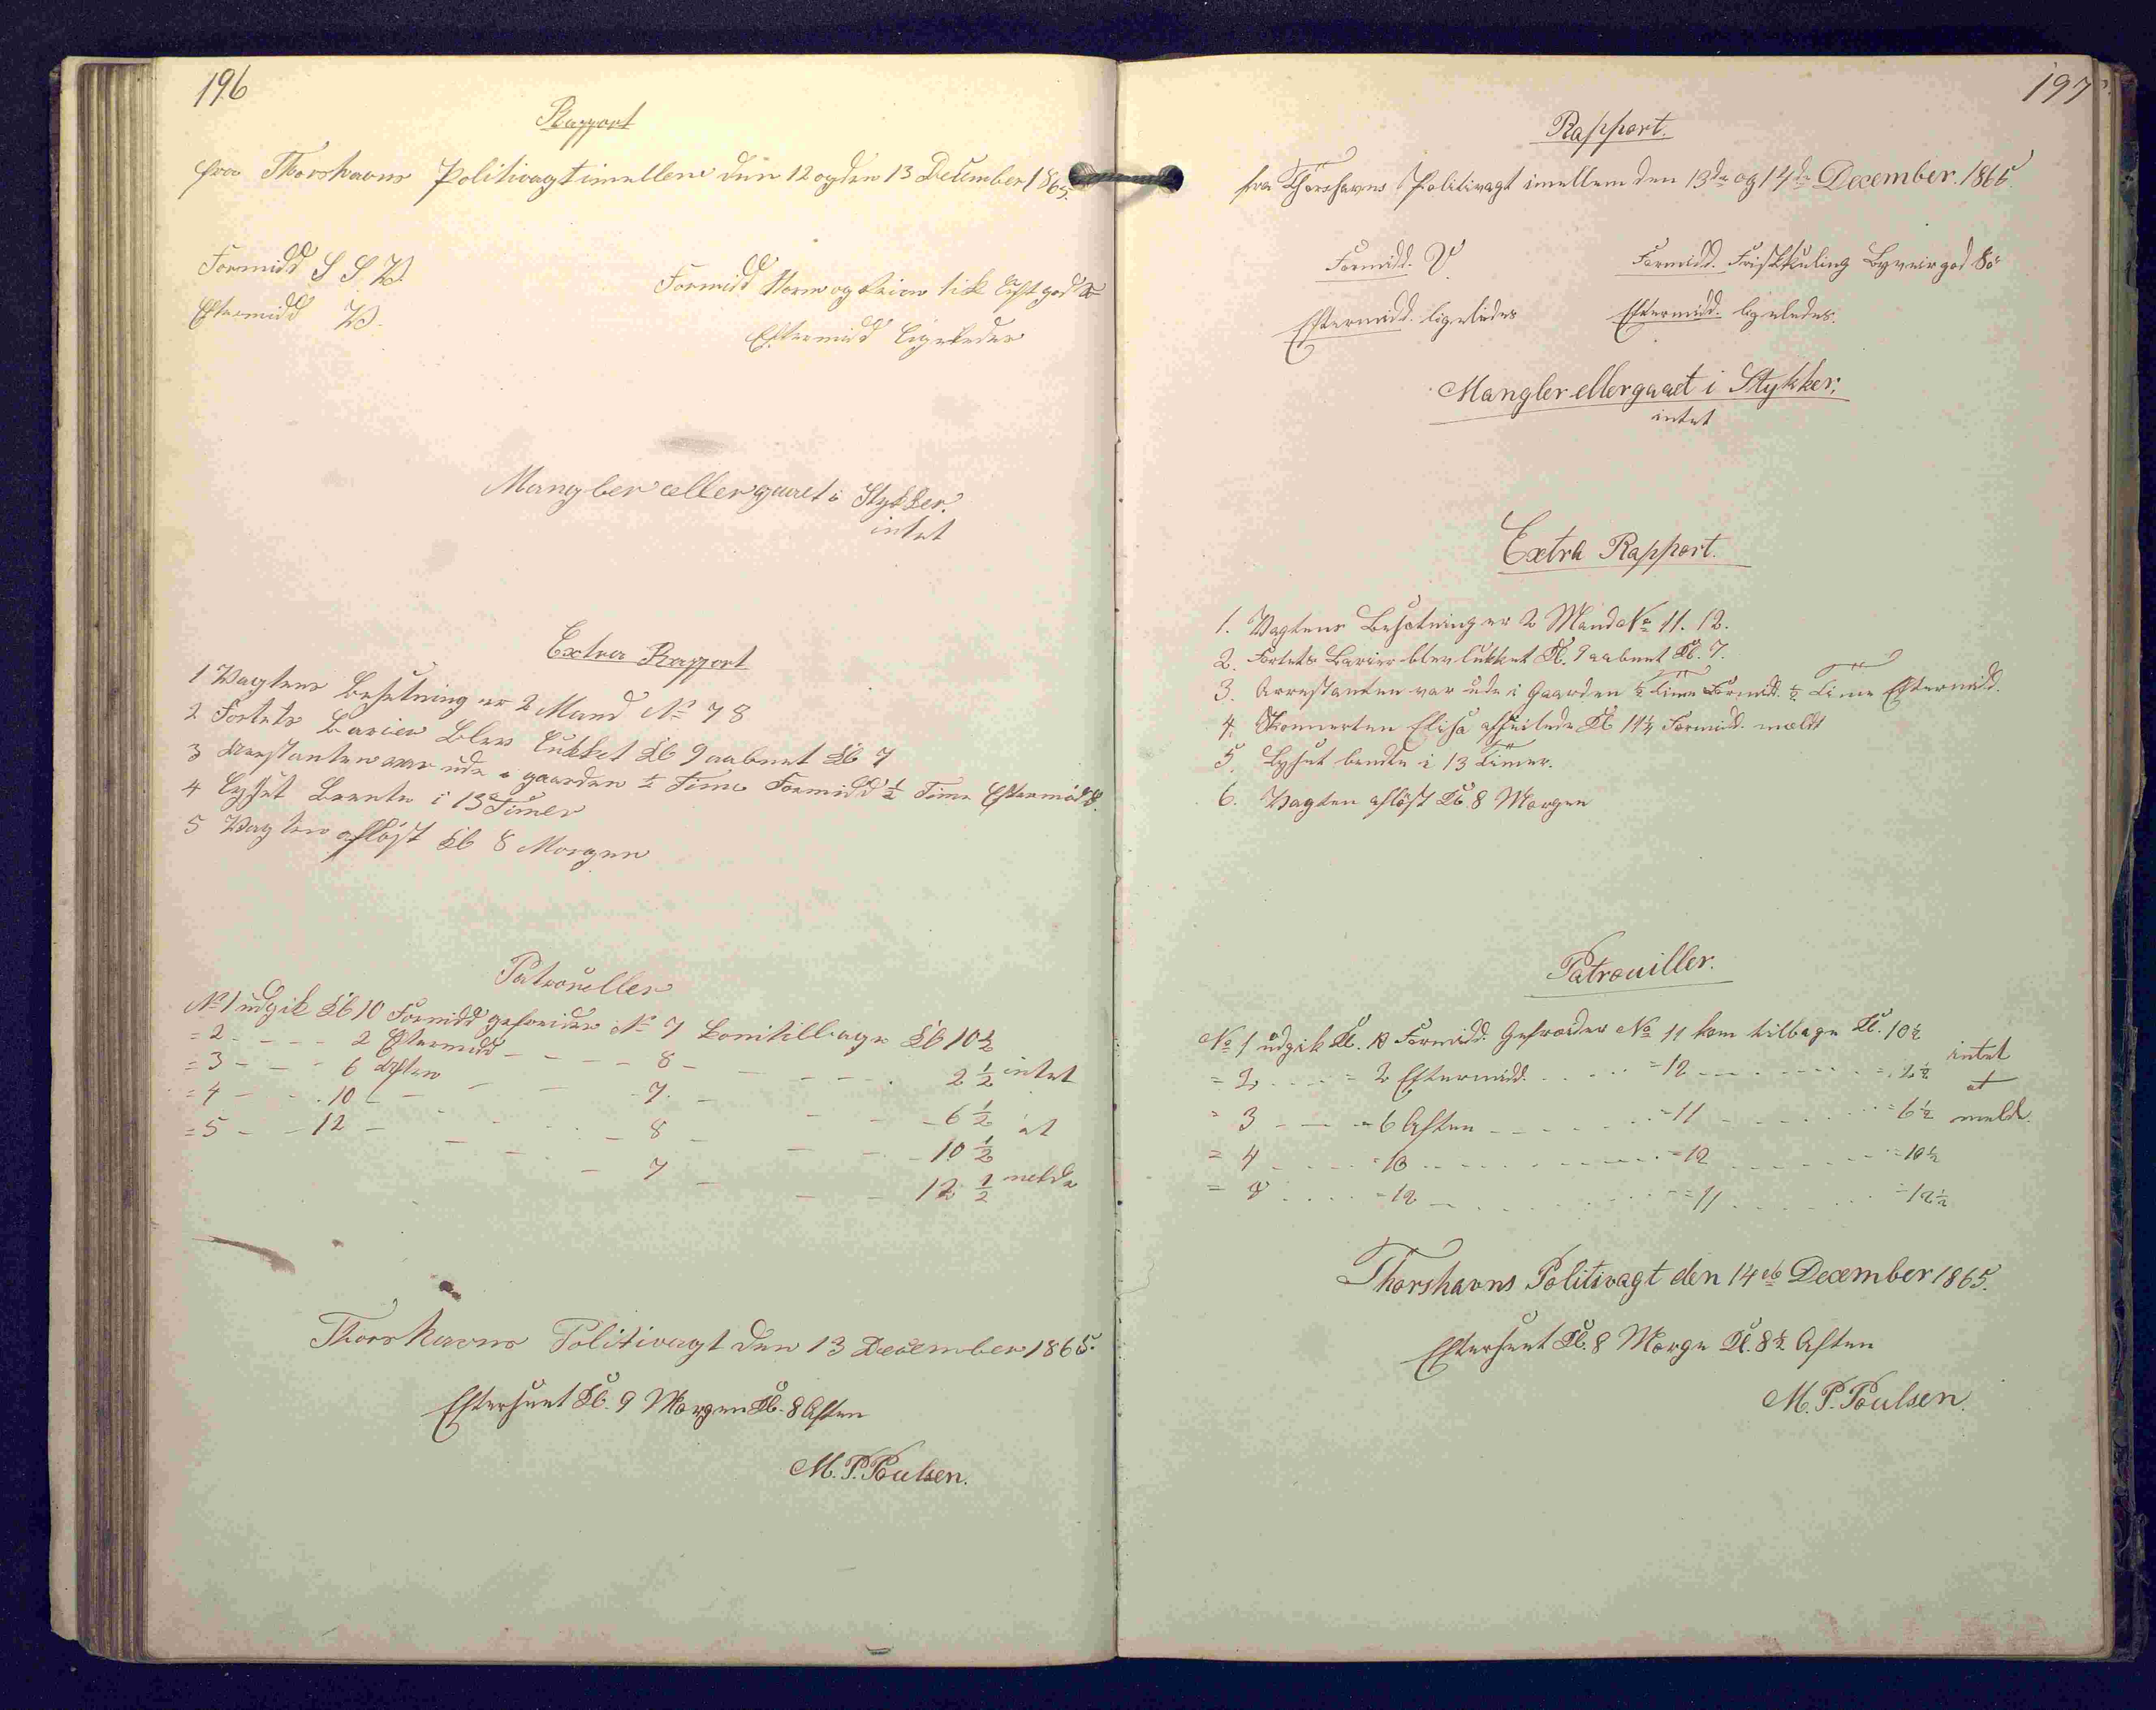 196
Rapport
fra Thorshavns Politivagt imellem den 12 og den 13 December 1865.
Formidd S S. V.
Formidd Storm og tik Luft god
Eftermidd V.
Eftermidd ligeledes
Mangler eller gaaet i Stykker.
intet
Extra Rapport
1 Vagtens Besetning er 2 Mand No 7 8
2 Fortets Barier blev lukket Kl 9 aabnet Kl 7
3 Arrestanten var ude i gaarden ½ Time Formidd ½ Time Eftermidd.
4 Lyset brente i 13 Timer
5 Vagten afløst Kl 8 Morgen
Patroueller
No 1 udgik Kl 10 Formidd gefreider No 7 kom tilbage Kl 10½
= 2 - - - - 2 Eftermidd - - - - 8 - - - - 2½ intet
= 3 - - - 6 Aften - - - 7. - - - 6½ at
= 4 - - - 10 - - - - 8 - - - 10½
= 5 - - 12 - - - - 7 - - - 12½ melde
Thorshavns Politivagt den 13 December 1865.
Efterseet Kl. 9 Morgen Kl. 8 Aften
M. P. Poulsen.
197
Rapport.
fra Thorshavns Politivagt imellem den 13de og 14de December. 1865
Formidd. V.
Formidd. Friskkuling Byveir god
Eftermidd. ligeledes
Eftermidd. ligeledes.
Mangler eller gaaet i Stykker.
intet
Extra Rapport.
1. Vagtens Besetning er 2 Mand No 11. 12.
2. Fortets Barier blev lukket Kl. 9 aabnet Kl. 7.
3. Arrestanten var ude i Gaarden ½ Time Formidd. ½ Time Eftermidd.
4. Skonnerten Elisa afseilede Kl 11½ Formidd. meldt
5. Lyset brendte i 13 Timer.
6. Vagten afløst Kl. 8 Morgen
Patrouiller.
No 1 udgik Kl. 10 Formidd. Gefreider No 11 kom tilbage Kl. 10½ intet
= 2 . . . . = 2 Eftermidd. . . . . = 12 - - - - = 2½ at
= 3 - - - = 6 Aften - - - - = 11 - - - - = 6½ melde.
= 4 . . . . = 10 . . . . = 12 . . . . = 10½
= 5 . . . . = 12 . . . . = 11 . . . . = 12½
Thorshavns Politivagt den 14de December 1865.
Efterseet Kl. 8 Morge Kl. 8½ Aften
M. P. Poulsen.